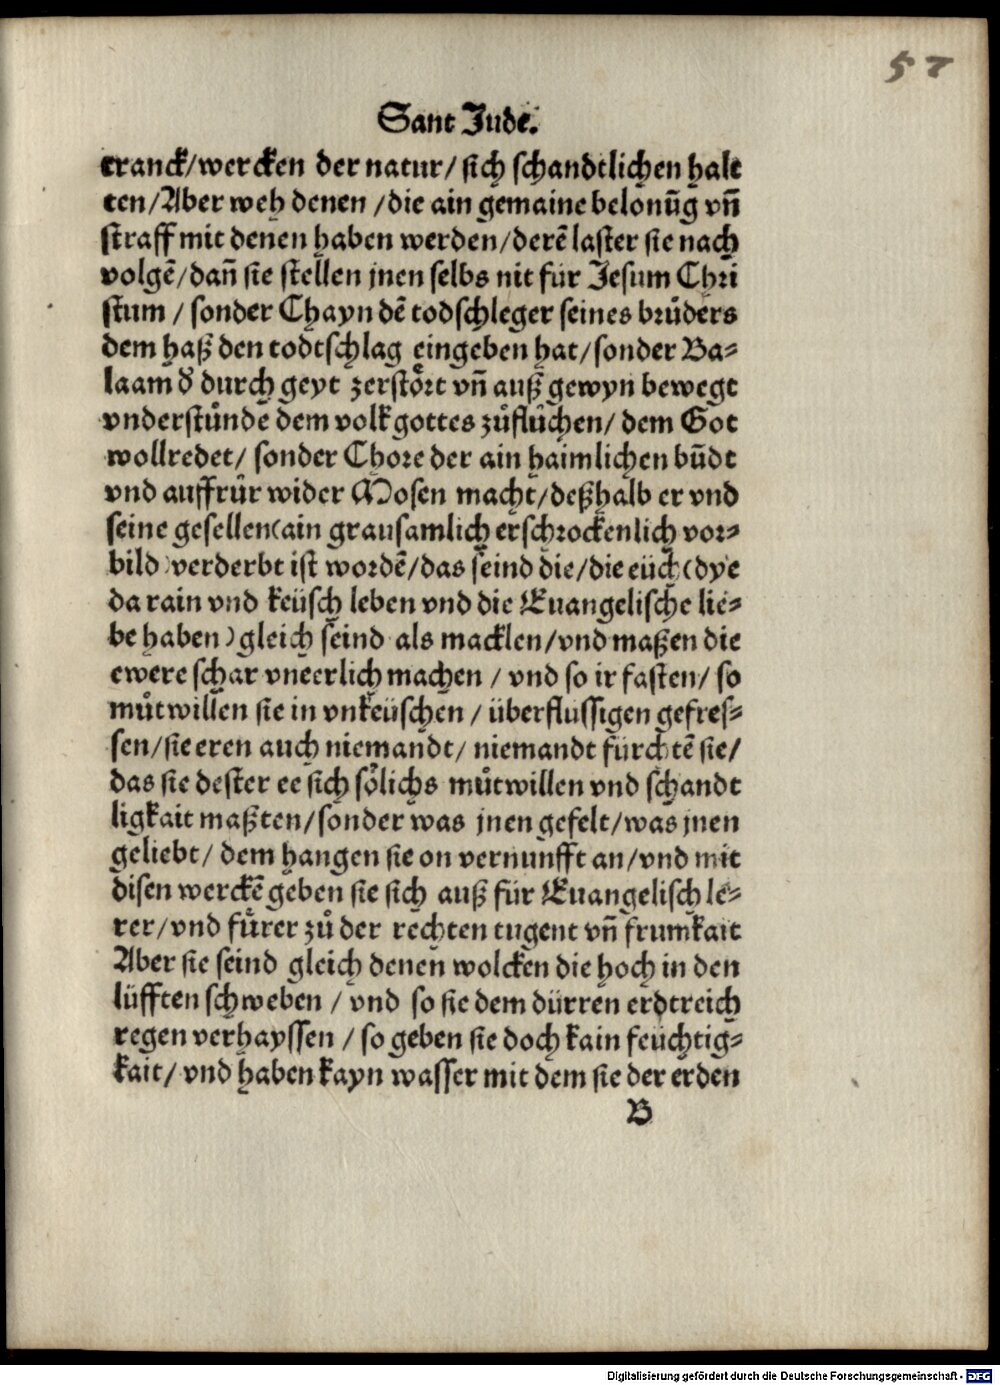 57
Sant Jude.
tranck/wercken der natur/ sich schandtlichen halt
ten/Aber weh denen /die ain gemaine belonūg vñ
straff mit denen haben werden/derē laster sie nach
volgē/dañ sie stellen jnen selbs nit für Jesum Chri
stum / sonder Chayn dē todschleger seines brůders
dem haß den todtschlag eingeben hat/sonder Ba⸗
laam d̓ durch geyt zerstoͤrt vñ auß gewyn bewegt
vnderstůnde dem volk gottes zůflůchen/ dem Got
wollredet/ sonder Chore der ain haimlichen būdt
vnd auffrůr wider Mosen macht/deßhalb er vnd
seine gesellen(ain grausamlich erschrockenlich vor⸗
bild)verderbt ist wordē/das seind die/die eüch(dye
da rain vnd keüsch leben vnd die Euangelische lie⸗
be haben)gleich seind als macklen/vnd maßen die
ewere schar vneerlich machen / vnd so ir fasten/ so
můtwillen sie in vnkeüschen / überflüssigen gefres⸗
sen/sie eren auch niemandt/ niemandt fürchtē sie/
das sie dester ee sich soͤlichs můtwillen vnd schandt
ligkait maßten/sonder was jnen gefelt/was jnen
geliebt/ dem hangen sie on vernunfft an/vnd mit
disen werckē geben sie sich auß für Euangelisch le⸗
rer/vnd fuͤrer zů der rechten tugent vñ frumkait
Aber sie seind gleich denen wolcken die hoch in den
lüfften schweben / vnd so sie dem dürren erdtreich
regen verhayssen / so geben sie doch kain feüchtig⸗
kait/ vnd haben kayn wasser mit dem sie der erden
B
Digitalisierung gefördert durch die Deutsche Forschungsgemeinschaft - DFG